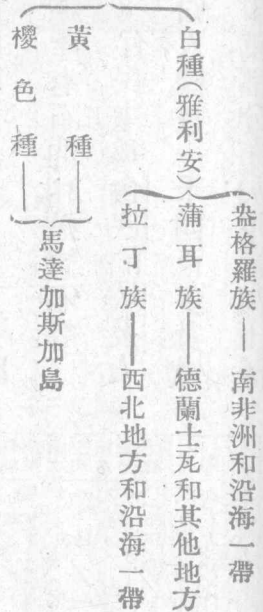 白種(雅利安)
盎格羅族——南非洲和沿海一帶
蒲耳族——德蘭士瓦和其他地方
拉丁族——西北地方和沿海一帶
黃種——
櫻色種——
馬達加斯加島